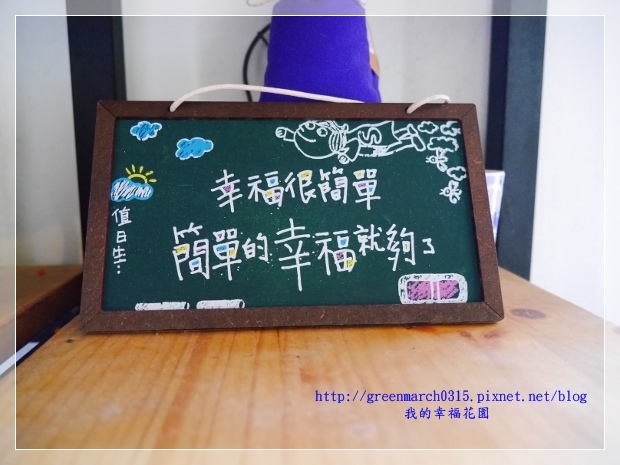 幸福很簡單
簡單的幸福就夠了
值日生…
http://greenmarch0315.pixnet.net/blog
我的幸福花園